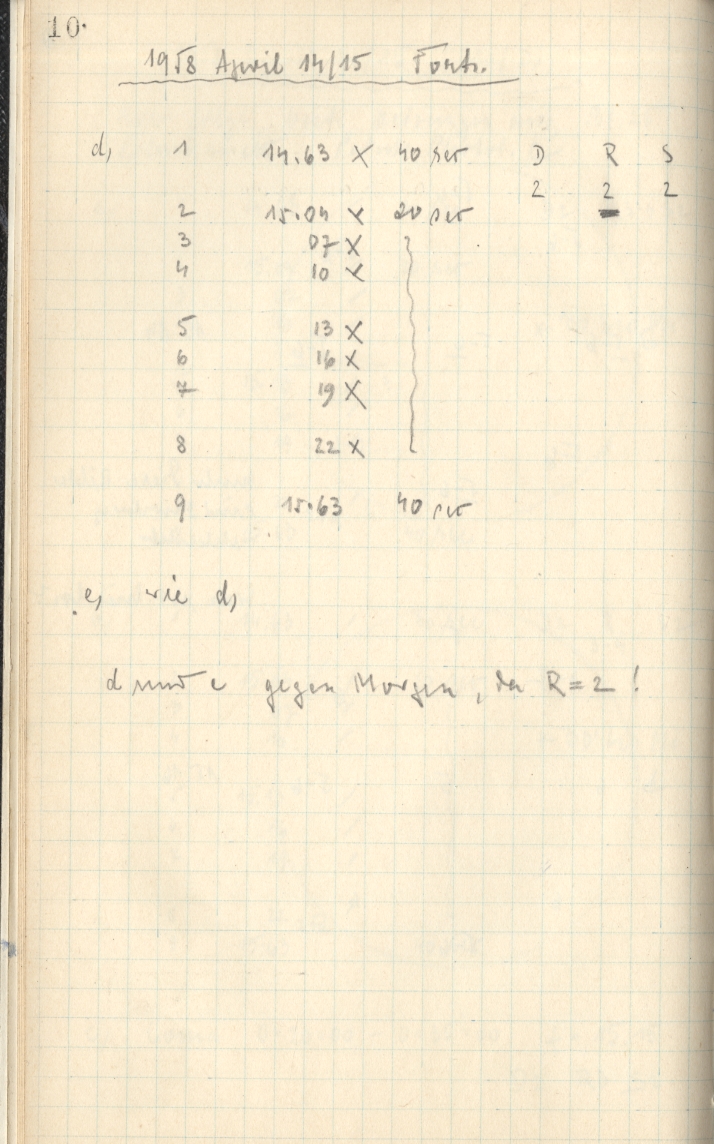 10.
1958 April 14/15 Forts.
d, 1 14.63 X 40 sec D R S
2 2 2
2 15.04 X 20 sec
3 07 X
4 10 X
5 13 X
6 16 X
7 19 X
8 22 X
9 15.63 40 sec
e, wie d,
d und e gegen Morgen, da R=2!